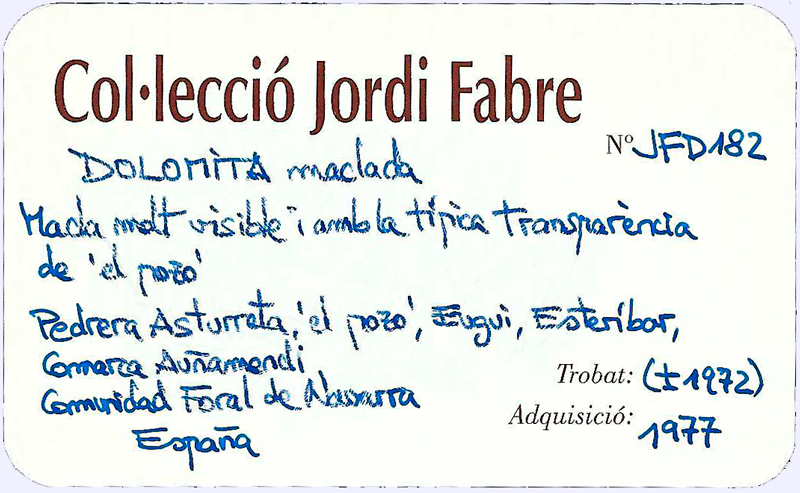 Col·lecció Jordi Fabre
Nº JFD182
DOLOMITA maclada
Macla molt visible i amb la típica transparència
de 'el pozo'
Pedrera Asturreta, 'el pozo', Eugui, Esteríbar,
Comarca Auñamendi
Comunidad Foral de Navarra
España
Trobat: (±1972)
Adquisició: 1977